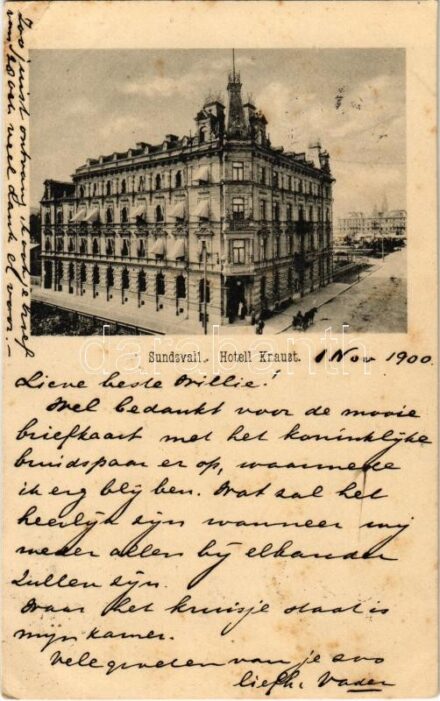 Zoo juist ontvang ik je brief
van 28 Oct. veel dank er voor. -
Sundsvall. Hotell Knaust. 1 Nov 1900.
Lieve beste Willie!
Wel bedankt voor de mooie
briefkaart met het koninklijke
bruidspaar er op, waarmede
ik erg blij ben. Wat zal het
heerlijk zijn wanneer wij
weder allen bij elkander
zullen zijn.
Waar het kruisje staat is
mijn kamer.
Vele groeten van je zoo
liefh. Vader
darabanth